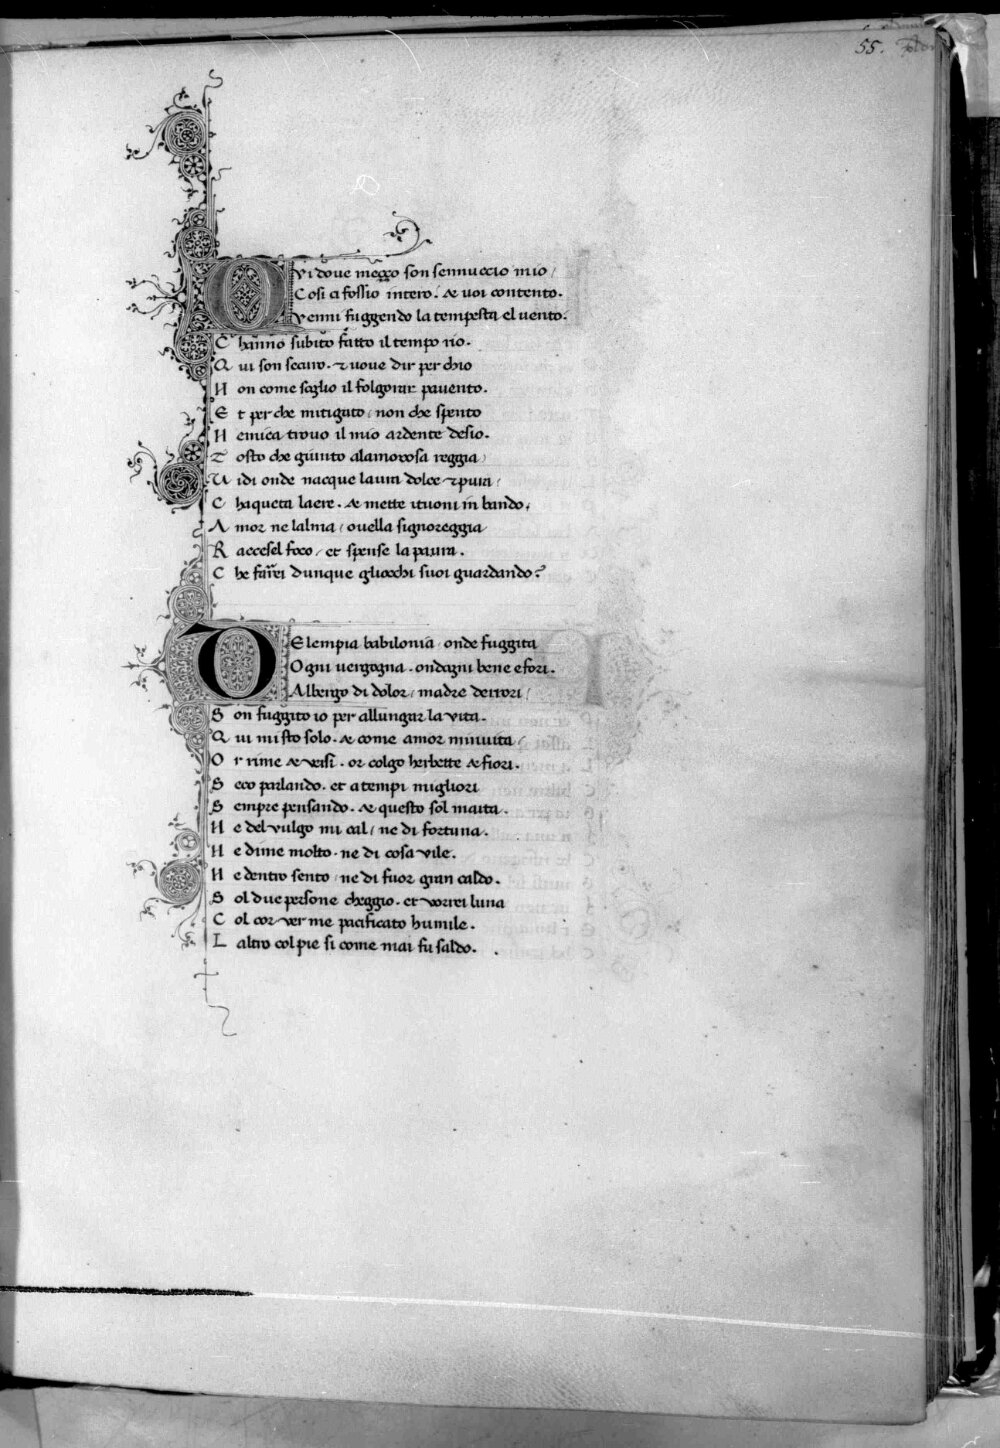 55.
Qvi doue meçço son sennuccio mio /
Cosi ci fossio intero. & uoi contento.
Venni fuggendo la tempesta el uento.
C hanno subito fatto il tempo rio.
Q ui son securo. & uoue dir per chio
N on come soglio il folgorar pauento.
E t per che mitigato / non che spento
N emica trouo il mio ardente desio.
T osto che giunto alamorosa reggia /
U idi onde nacque laura dolce & pura /
C haqueta laere. & mette ituoni in bando /
A mor ne lalma / ouella signoreggia
R accesel foco / et spense la paura.
C he farrei dunque gliocchi suoi guardando?
DElempia babilonia / onde fuggita
Ogni uergogna. ondogni bene e fori.
Albergo di dolor / madre derrori /
S on fuggito io per allungar la vita.
Q ui mi sto solo. & come amor minuita /
O r rime & versi. or colgo herbette & fiori.
S eco parlando. et a tempi migliori
S empre pensando. & questo sol maita.
N e del vulgo mi cal / ne di fortuna.
N e di me molto. ne di cosa vile.
N e dentro sento / ne di fuor gran caldo.
S ol due persone cheggio. et vorrei luna
C ol cor ver me pacificato humile.
L altro col pie si come mai fu saldo.